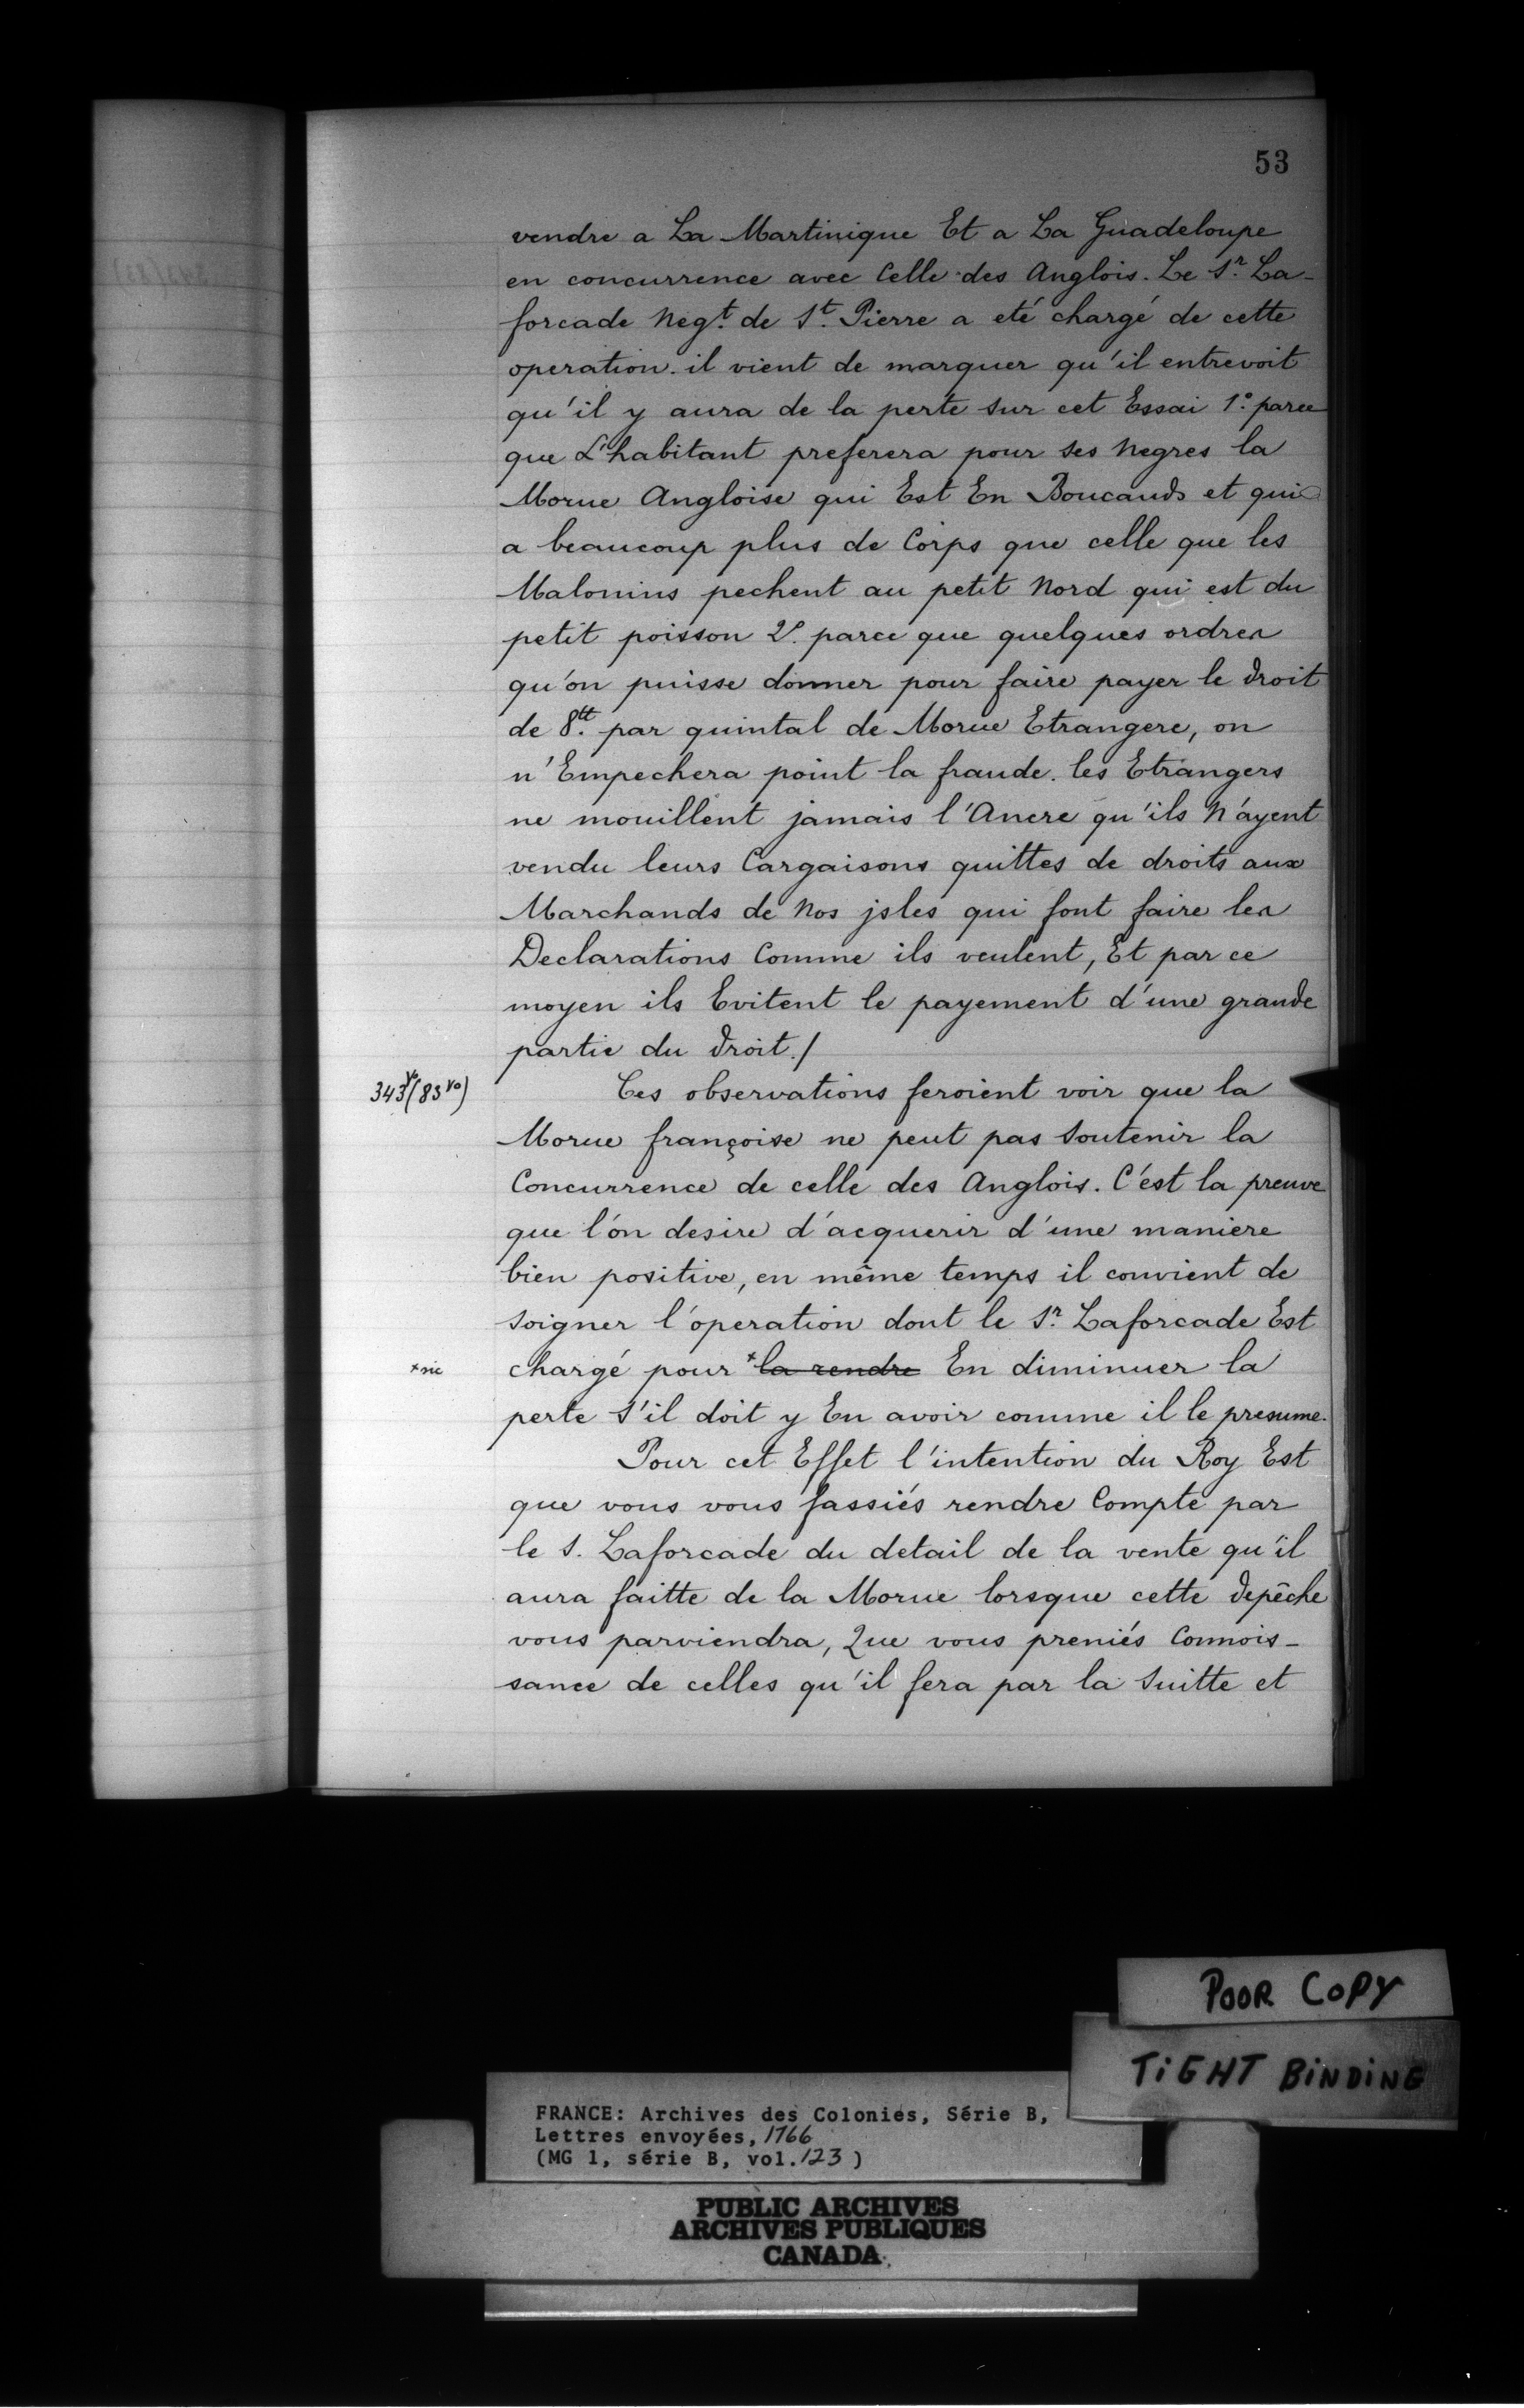 53
vendre a La Martinique Et a La Guadeloupe
en concurrence avec Celle des Anglois. Le Sr. La-
forcade Negt. de St. Pierre a eté chargé de cette
operation. il vient de marquer qu'il entrevoit
qu'il y aura de la perte sur cet Essai 1º. parce
que L'habitant preferera pour ses Negres la
Morue Angloise qui Est En Boucauds et qui
a beaucoup plus de Corps que celle que les
Malonins pechent au petit Nord qui est du
petit poisson 2º. parce que quelques ordres
qu'on puisse donner pour faire payer le droit
de 8tt. par quintal de Morue Etrangere, on
n'Empechera point la fraude. les Etrangers
ne mouillent jamais l'Ancre qu'ils N'ayent
vendu leurs Cargaisons quittes de droits aux
Marchands de Nos jsles qui font faire les
Declarations Comme ils veulent, Et par ce
moyen ils Evitent le payement d'une grande
partie du droit./
343vo(83vo)
Ces observations feroient voir que la
Morue françoise ne peut pas Soutenir la
Concurrence de celle des Anglois. C'est la preuve
que l'on desire d'acquerir d'une maniere
bien positive, en même temps il convient de
soigner l'operation dont le Sr. Laforcade Est
*sic
chargé pour *la rendre En diminuer la
perte S'il doit y En avoir comme il le presume.
Pour cet Effet l'intention du Roy Est
que vous vous fassiés rendre Compte par
le S. Laforcade du detail de la vente qu'il
aura faitte de la Morue lorsque cette depêche
vous parviendra, Que vous preniés Connois-
sance de celles qu'il fera par la Suitte et
POOR COPY
TIGHT BINDING
FRANCE: Archives des Colonies, Série B,
Lettres envoyées, 1766
(MG 1, série B, vol. 123)
PUBLIC ARCHIVES
ARCHIVES PUBLIQUES
CANADA